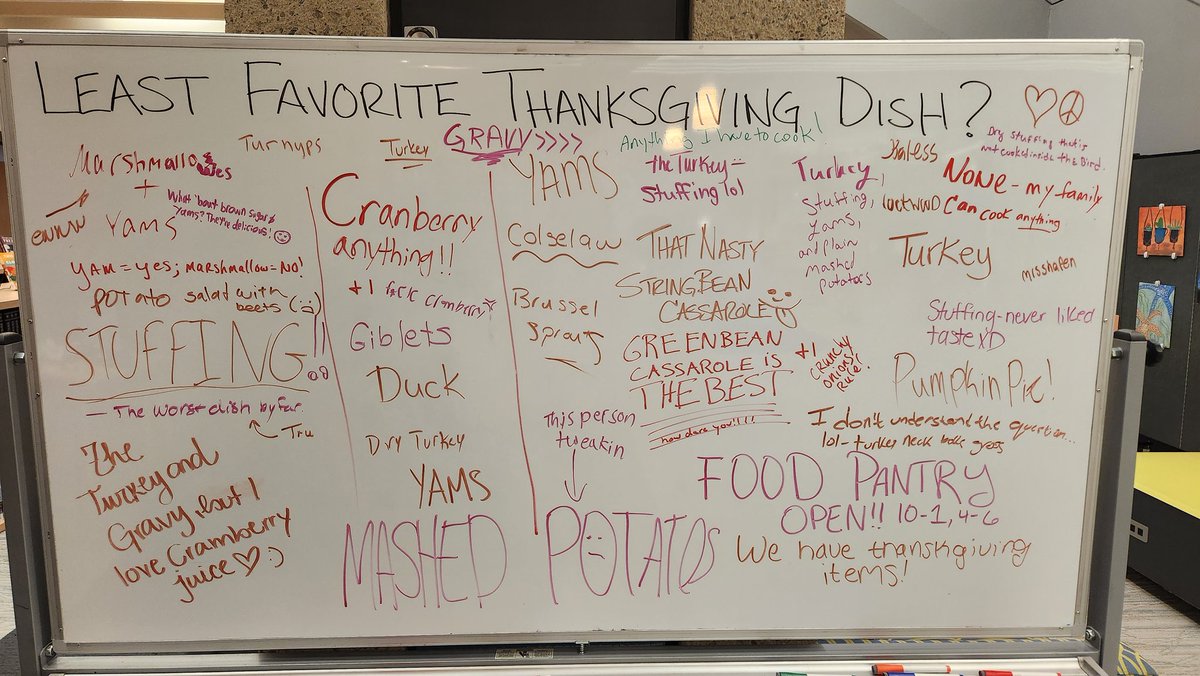 LEAST FAVORITE THANKSGIVING DISH?
Marshmallowes
+
ewww Yams
What 'bout brown sugar &
Yams? They're delicious!
YAM = Yes; MARSHMALLOW = NO!
POTATO salad with
beets
STUFFING!!
— The worst dish by far.
Tru
The
Turkey and
Gravy, but I
love Cramberry
juice
Turnyps
Turkey
GRAVY >>>>
Cranberry
anything!!
+1 f*ck cranberry
Giblets
Duck
Dry Turkey
YAMS
YAMS
Colselaw
Brussel
Sprouts
This person
tweakin
MASHED POTATOS
Anything I have to cook!
the Turkey
Stuffing lol
THAT NASTY
STRINGBEAN
CASSAROLE
GREENBEAN
CASSAROLE IS
THE BEST
how dare you!!!!
+1
crunchy
onions
rule!
Turkey,
Stuffing,
yams,
and plain
mashed
potatos
Dry stuffing that is
not cooked inside the Bird.
NONE - my family
Can cook anything
Turkey
misshafen
Stuffing-never liked
taste XD
Pumpkin Pie!
I don't understand the question...
lol - turkey neck gross
FOOD PANTRY
OPEN!! 10-1, 4-6
We have thanskgiving
items!